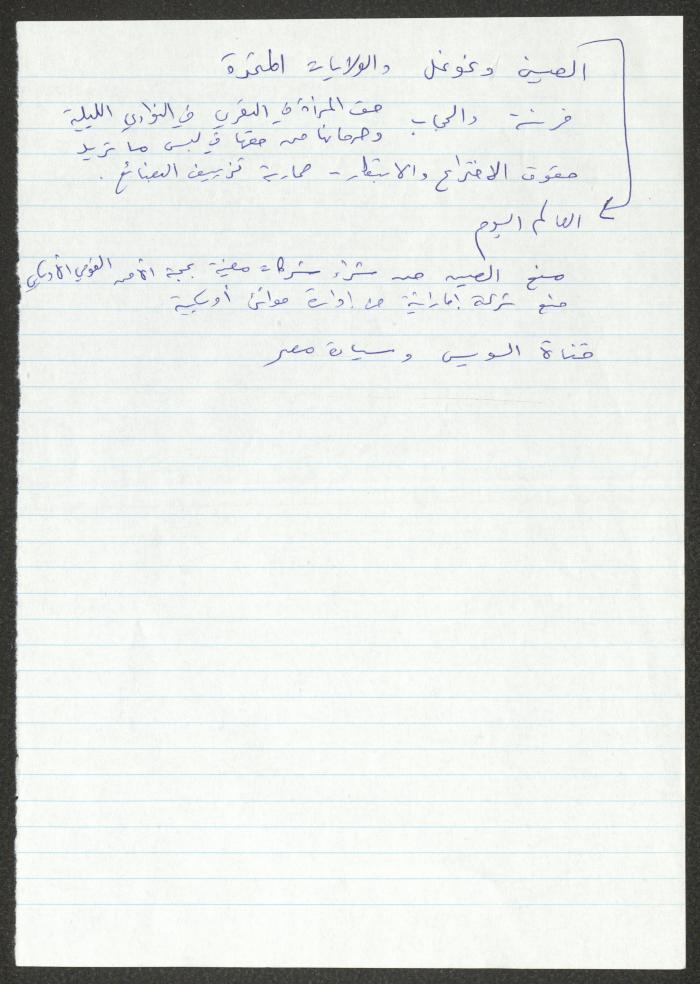 الصين وغوغل والولايات المتحدة
فرنسة والحجاب حق المرأة في التعري في النوادي الليلية
وحرمانها من حقها في لبس ما تريد
حقوق الاختراع والابتكار - محاربة تزييف البضائع.
العالم اليوم
منع الصين من شراء شركات معينة بحجة الأمن القومي الأمريكي
منع شركة إماراتية من إدارة موانئ أمريكية
قناة السويس وسيادة مصر